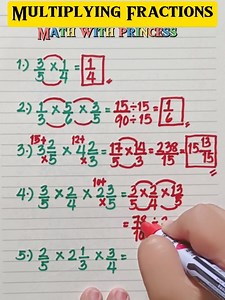 MULTIPLYING FRACTIONS
MATH WITH PRINCESS
1.) 3/5 × 1/4 = 1/4
2.) 1/3 × 5/6 × 3/5 = 15÷15/90÷15 = 1/6
3.) 15+ 3 2/5 × 12+ 4 2/3 = 17/5 × 14/3 = 238/15 = 15 13/15
4.) 3/5 × 2/4 × 10+ 2 3/5 = 3/5 × 2/4 × 13/5
= 78/10 ÷ 2
5.) 2/5 × 2 1/3 × 3/4 =